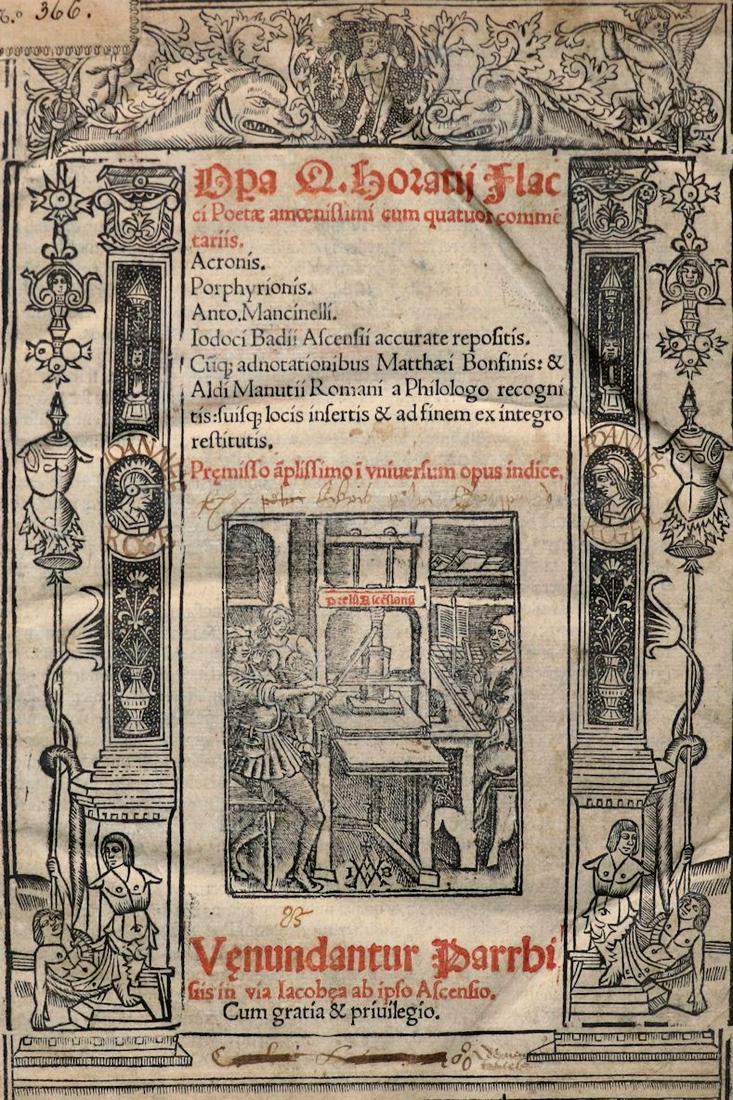 366.
Opa Q. Horatij Flac
ci Poetæ amœnissimi cum quatuor commē
tariis.
Acronis.
Porphyrionis.
Anto, Mancinelli.
Iodoci Badii Ascensii accurate repositis.
Cūq; adnotationibus Matthæi Bonfinis: &
Aldi Manutii Romani a Philologo recogni
tis: suisq; locis insertis & ad finem ex integro
restitutis.
Pręmisso āplissimo ī vniuersum opus indice.
IOANNES
ROGE
IOANNES
ROGE
Prelū Ascēsianū
Vęnundantur Parrhi
siis in via Iacobęa ab ipso Ascensio.
Cum gratia & priuilegio.